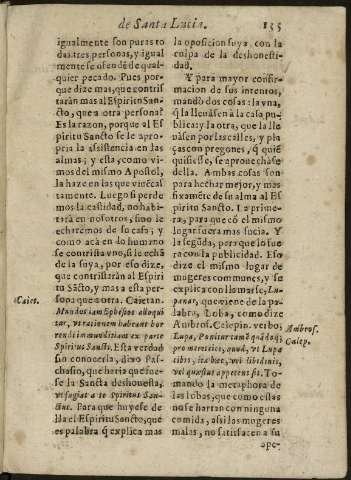 de Santa Lucia.
135
igualmente son puras to
das tres personas, y igual
mente se ofendē de qual-
quier pecado. Pues por-
que dize mas, que contris
tarán mas al Espiritu San-
cto, que a otra persona?
Es la razon, porque al Es
piritu Sancto se le apro-
pria la assistencia en las
almas; y esta, como vi-
mos del mismo Apostol,
la haze en las que viuē cas
tamente. Luego si perde
mos la castidad, no habi-
tará en nosotros, sino le
echaremos de su casa; y
como acà en lo humano
se contrista vno, si le echā
de la suya, por esso dize,
que contristarán al Espi-
ritu Sācto, y mas a esta per-
sona que a otra. Caietan.
Mundos iam Ephesios alloqui
tur, & rationem habeant hor
rendi immunditiam ex parte
Spiritus Sancti. Esta verdad
sin conocerla, dixo Pas-
chasio, que haria que fue-
se la Sancta deshonesta,
vt fugiat a te Spiritus San-
ctus. Para que huyese de-
lla el Espiritu Sancto, que
es palabra q̄ explica mas
Caiet.
la oposicion suya, con la
culpa de la deshonesti-
dad.
Y para mayor confir-
macion de sus intentos,
mandò dos cosas: la vna,
q̄ la lleuasen a la casa pu-
blica; y la otra, que la lle
uasen por las calles, y pla
ças con pregones, q̄ quiē
quisiese, se aprouechase
della. Ambas cosas son
para hechar mejor, y mas
infamēte de su alma al Es
piritu Sācto. La prime-
ra, para que có el mismo
lugar fuera mas sucia. Y
la segūda, pera que lo fue
ra con la publicidad. Eso
dize el mismo lugar de
mugeres communes, y se
explica con llomarse, Lu-
panar, que viene de la pa-
labra, Loba, como dize
Ambros. Calepin. verbo:
Lupa, Ponitur tamē quādoq;
pro meretrice, quod, vt Lupa
cibis, ita hæc, vel libidinis,
vel quæstus appetens sit. To-
mando la metaphora de
las lobas, que como ellas
no se hartan con ninguna
comida, asi las mugeres
malas, no satisfacen a su
ape-
Ambros.
Calep.